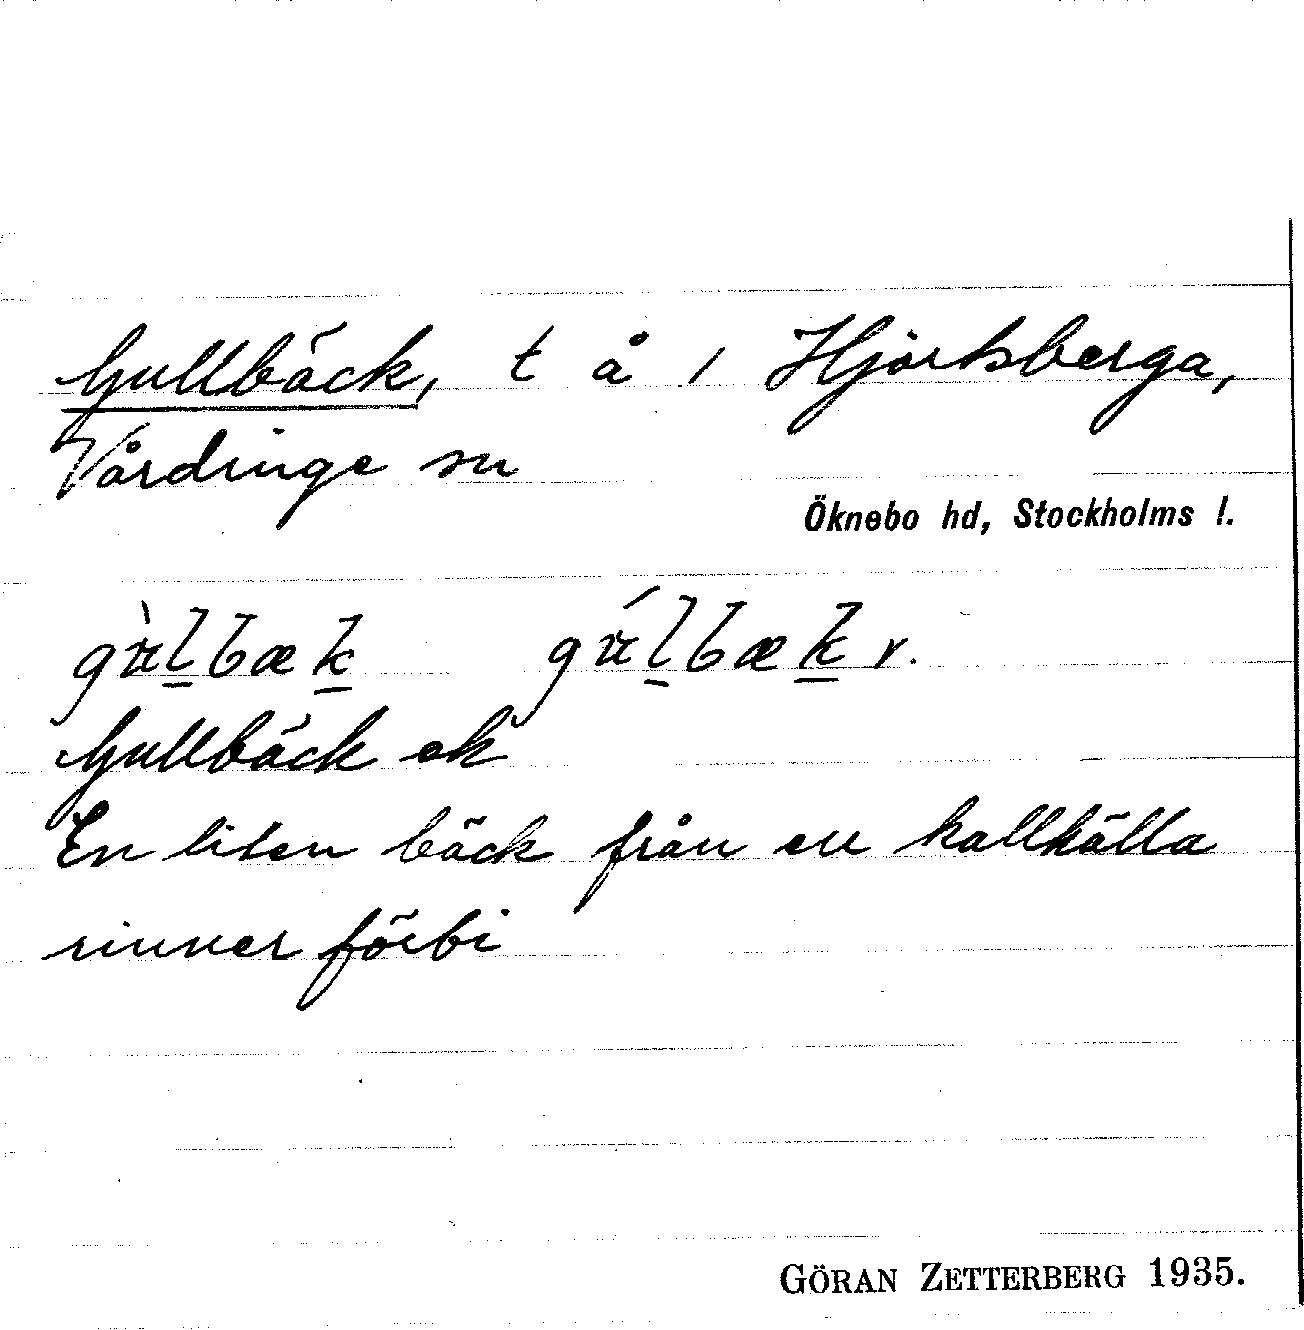 Gullbäck, t å i Hjortsberga,
Vårdinge sn
Öknebo hd, Stockholms l.
gùl̲bæk̲ gúl̲bæk̲ r.
Gullbäck ek
En liten bäck från en kallkälla
rinner förbi
GÖRAN ZETTERBERG 1935.